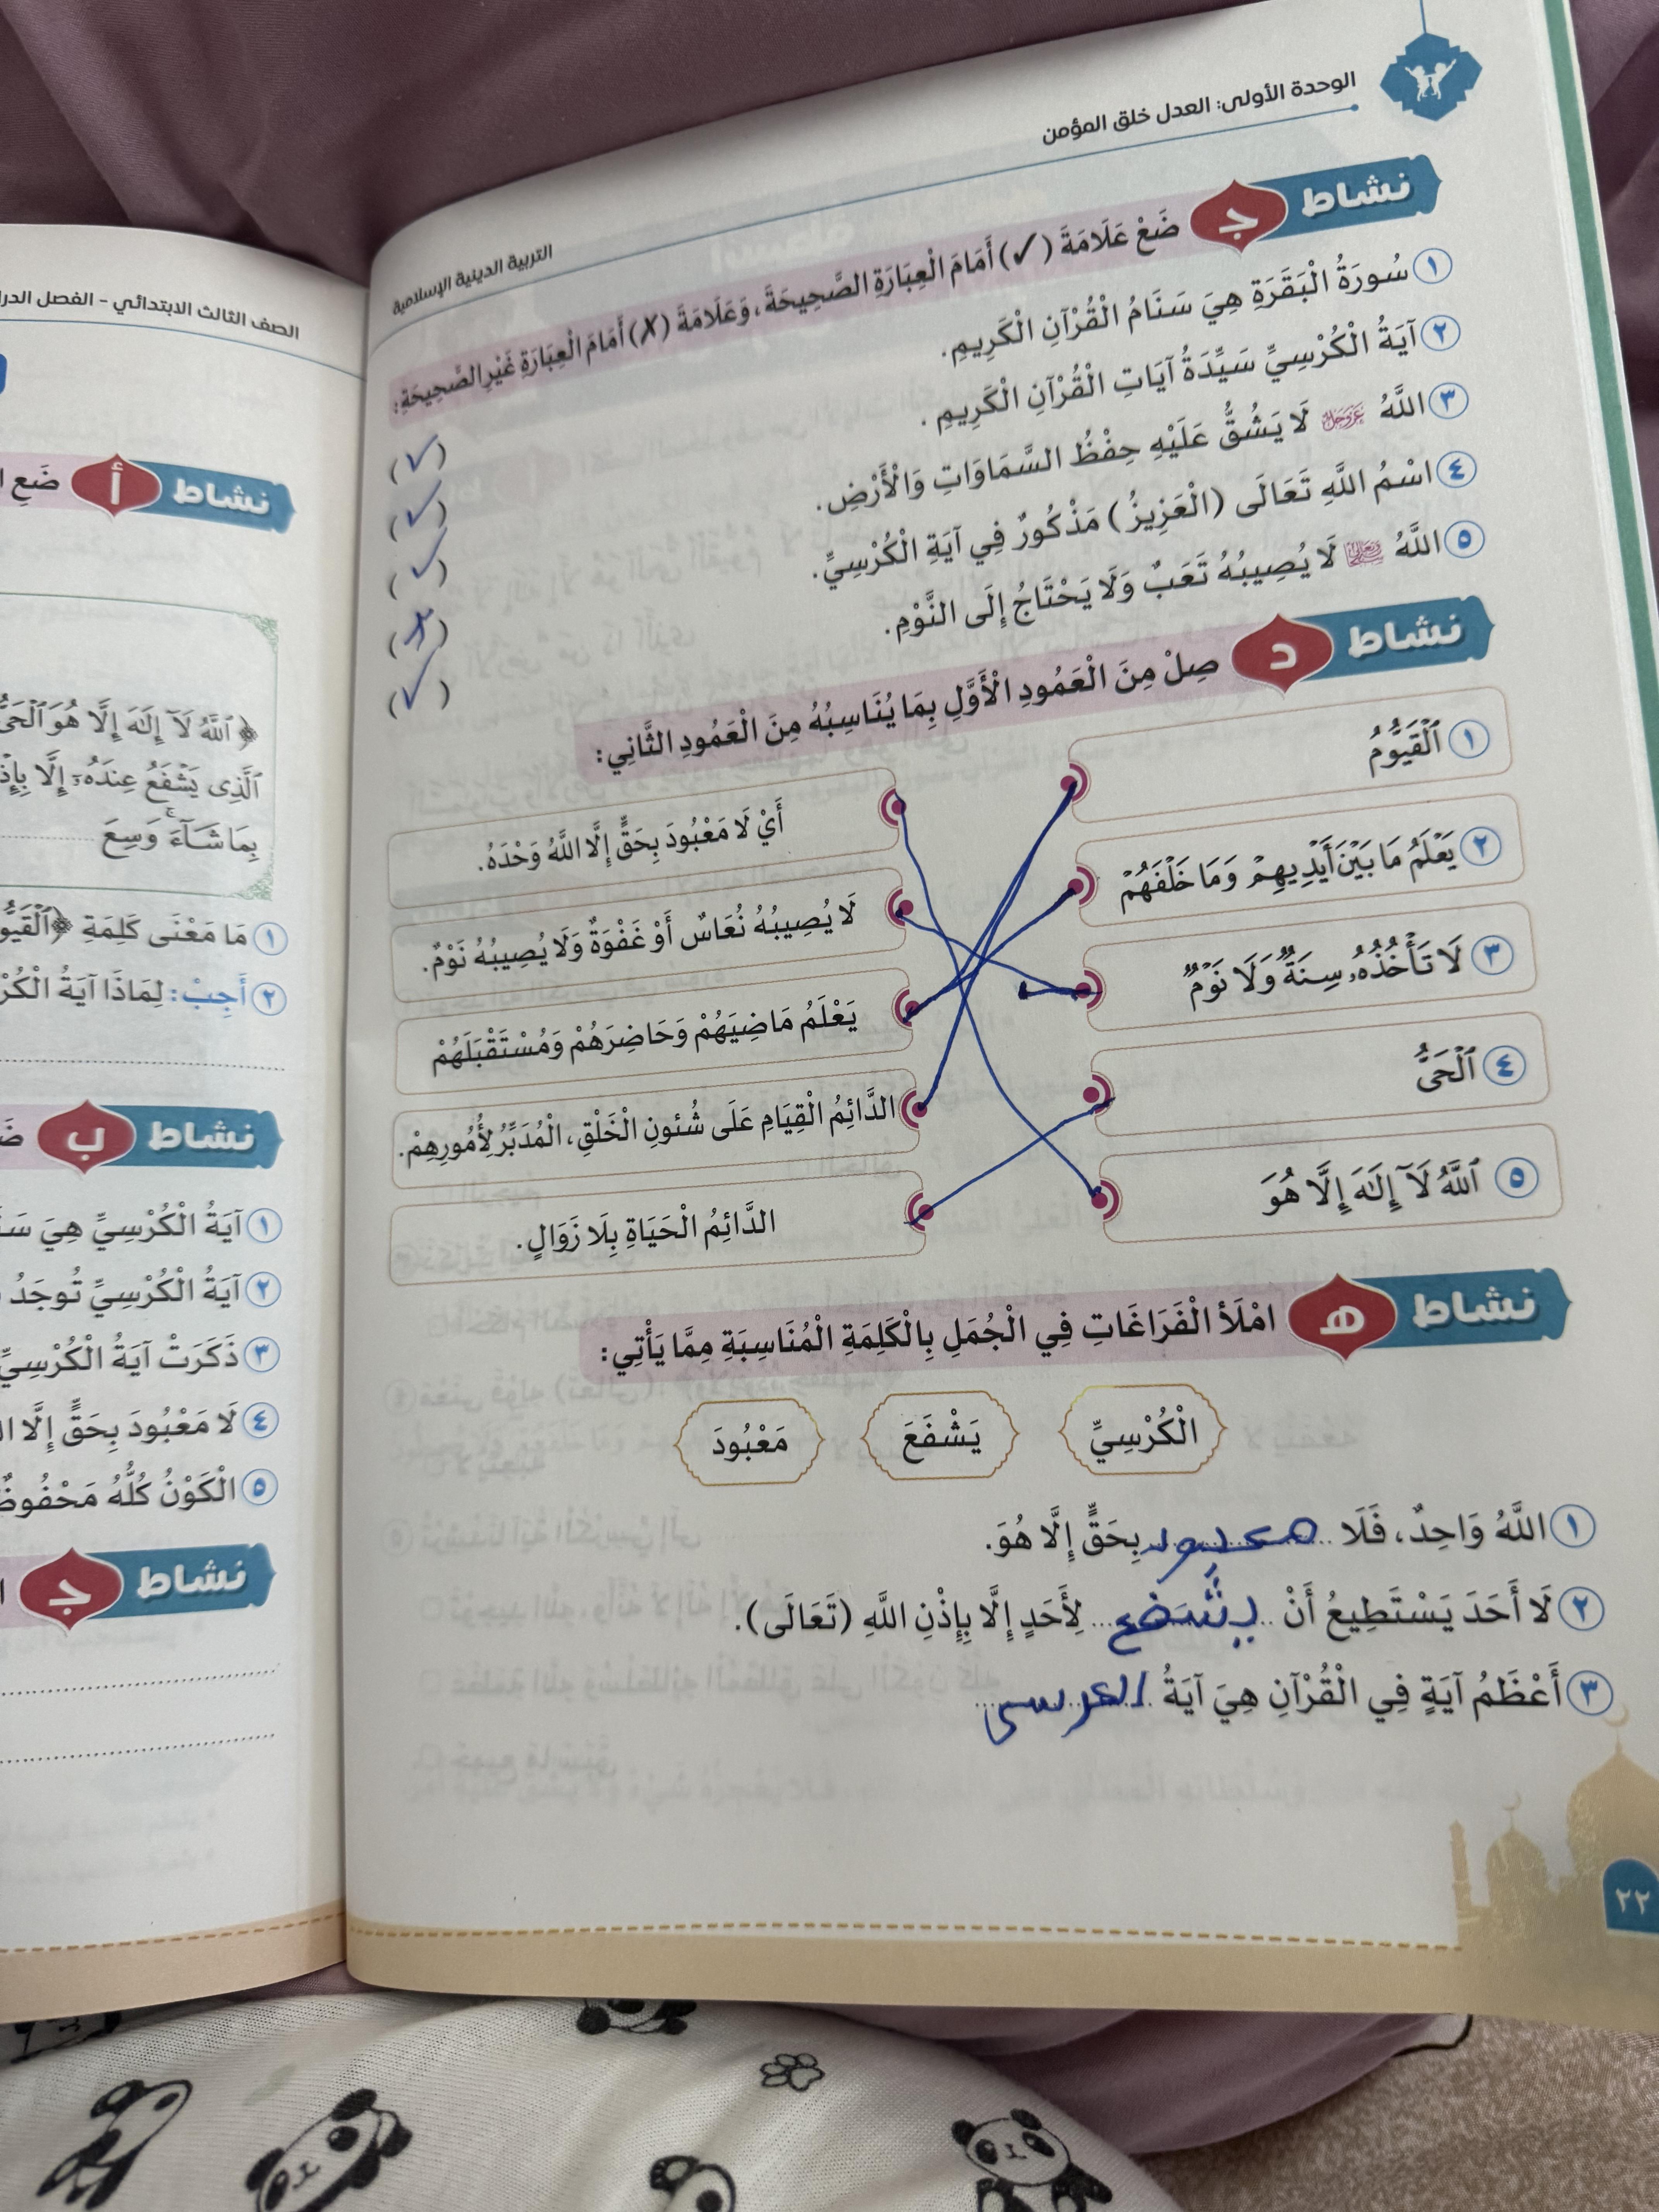 الوحدة الأولى: العدل خلق المؤمن
التربية الدينية الإسلامية
نشاط ج ضَعْ عَلَامَةَ (✓) أَمَامَ الْعِبَارَةِ الصَّحِيحَةَ، وَعَلَامَةَ (✗) أَمَامَ الْعِبَارَةِ غَيْرِ الصَّحِيحَةِ:
١ سُورَةُ الْبَقَرَةِ هِيَ سَنَامُ الْقُرْآنِ الْكَرِيمِ. (✓)
٢ آيَةُ الْكُرْسِيِّ سَيِّدَةُ آيَاتِ الْقُرْآنِ الْكَرِيمِ. (✓)
٣ اللَّهُ عَزَّوَجَلَّ لَا يَشُقُّ عَلَيْهِ حِفْظُ السَّمَاوَاتِ وَالْأَرْضِ. (✓)
٤ اسْمُ اللَّهِ تَعَالَى (الْعَزِيزُ) مَذْكُورٌ فِي آيَةِ الْكُرْسِيِّ. (✗)
٥ اللَّهُ لَا يُصِيبُهُ تَعَبٌ وَلَا يَحْتَاجُ إِلَى النَّوْمِ. (✓)
نشاط د صِلْ مِنَ الْعَمُودِ الْأَوَّلِ بِمَا يُنَاسِبُهُ مِنَ الْعَمُودِ الثَّانِي:
١ ٱلْقَيُّومُ
أَيْ لَا مَعْبُودَ بِحَقٍّ إِلَّا اللَّهُ وَحْدَهُ.
٢ يَعْلَمُ مَا بَيْنَ أَيْدِيهِمْ وَمَا خَلْفَهُمْ
لَا يُصِيبُهُ نُعَاسٌ أَوْ غَفْوَةٌ وَلَا يُصِيبُهُ نَوْمٌ.
٣ لَا تَأْخُذُهُۥ سِنَةٌ وَلَا نَوْمٌ
يَعْلَمُ مَاضِيَهُمْ وَحَاضِرَهُمْ وَمُسْتَقْبَلَهُمْ
٤ ٱلْحَىُّ
الدَّائِمُ الْقِيَامِ عَلَى شُئونِ الْخَلْقِ، الْمُدَبِّرُ لِأُمُورِهِمْ.
٥ ٱللَّهُ لَآ إِلَٰهَ إِلَّا هُوَ
الدَّائِمُ الْحَيَاةِ بِلَا زَوَالٍ.
نشاط هـ امْلَأ الْفَرَاغَاتِ فِي الْجُمَلِ بِالْكَلِمَةِ الْمُنَاسِبَةِ مِمَّا يَأْتِي:
الْكُرْسِيِّ يَشْفَعَ مَعْبُودَ
١ اللَّهُ وَاحِدٌ، فَلَا معبود بِحَقٍّ إِلَّا هُوَ.
٢ لَا أَحَدَ يَسْتَطِيعُ أَنْ يشفع لِأَحَدٍ إِلَّا بِإِذْنِ اللَّهِ (تَعَالَى).
٣ أَعْظَمُ آيَةٍ فِي الْقُرْآنِ هِيَ آيَةُ الكرسى
٢٢
الصف الثالث الابتدائي - الفصل
نشاط أ ضَعِ
﴿ ٱللَّهُ لَآ إِلَٰهَ إِلَّا هُوَ ٱلْحَىُّ
ٱلَّذِى يَشْفَعُ عِندَهُۥٓ إِلَّا
بِمَا شَآءَ وَسِعَ
١ مَا مَعْنَى كَلِمَةِ
٢ أَجِبْ: لِمَاذَا آيَةُ
نشاط ب
١ آيَةُ الْكُرْسِيِّ هِيَ
٢ آيَةُ الْكُرْسِيِّ تُوجَدُ
٣ ذَكَرَتْ آيَةُ الْكُرْسِيِّ
٤ لَا مَعْبُودَ بِحَقٍّ إِلَّا
٥ الْكَوْنُ كُلُّهُ
نشاط ج